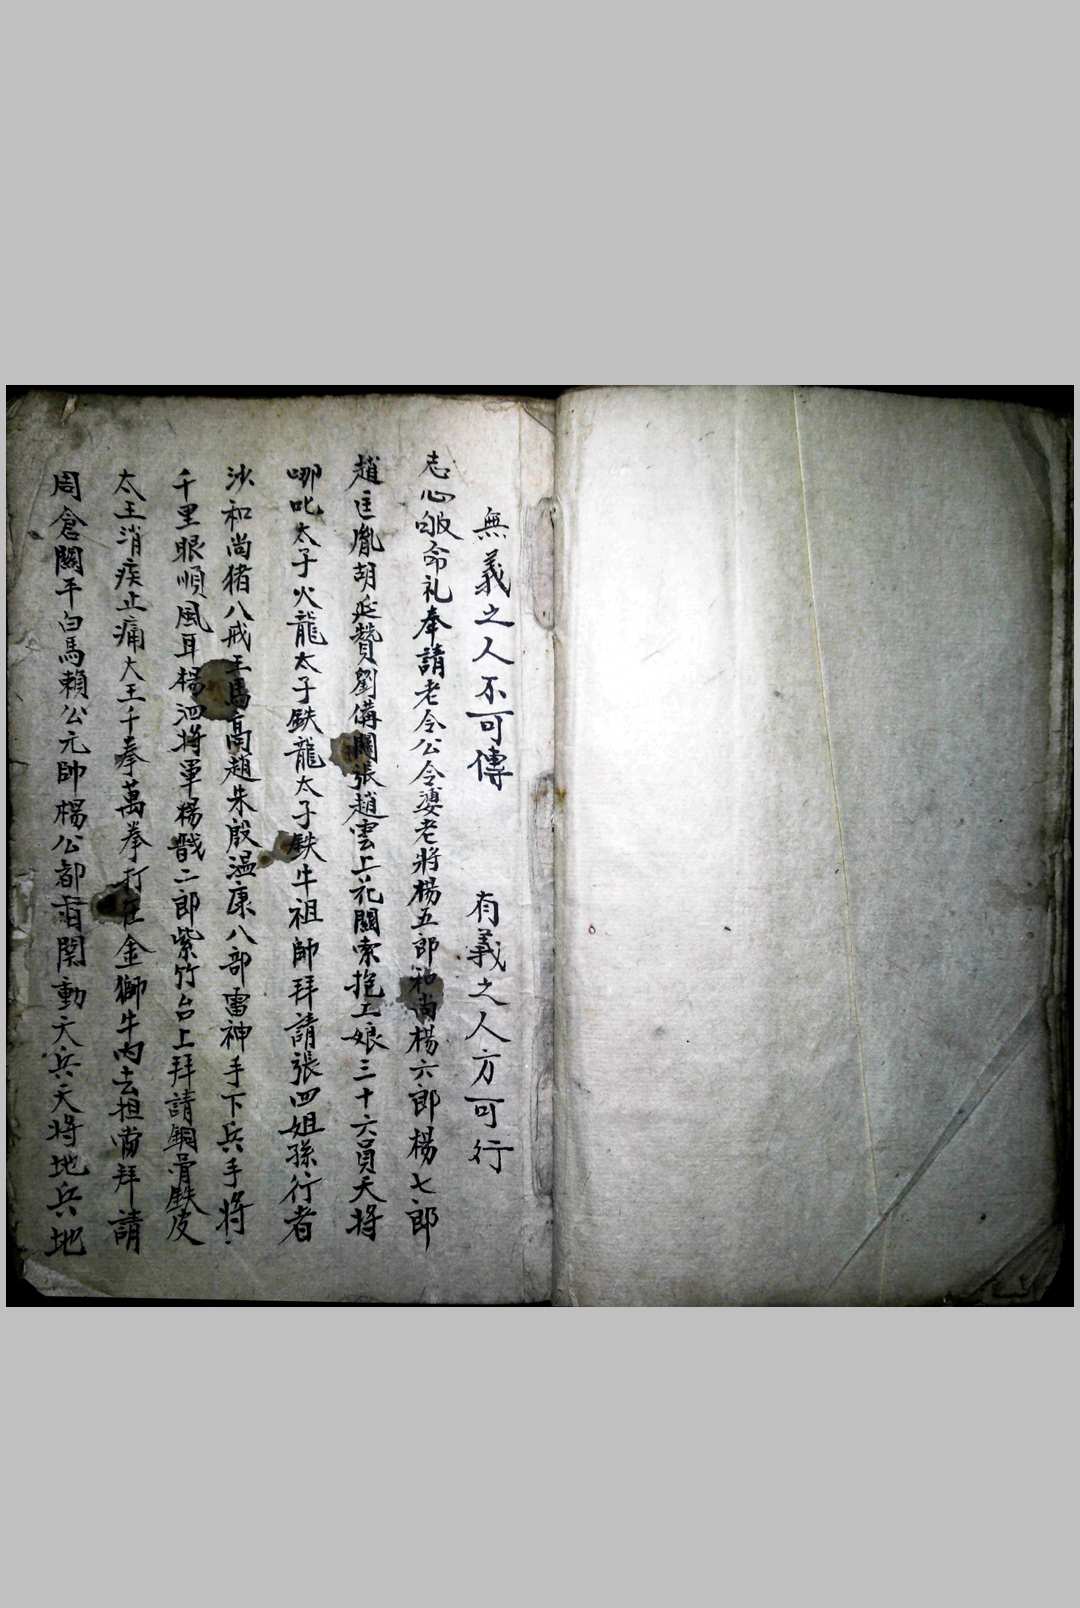 無義之人不可傳 有義之人方可行
志心皈命礼奉請老令公令婆老將楊五郎和尚楊六郎楊七郎
趙匡胤胡延贊劉俻關張趙雲上花關索抱工娘三十六員天將
哪叱太子火龍太子鉄龍太子鉄牛祖師拜請張四姐孫行者
沙和尚猪八戒王馬高趙朱殷温康八部雷神手下兵手將
千里眼順風耳楊泗將軍楊戩二郎紫竹台上拜請銅骨鉄皮
太王消疾止痛大王千拳萬拳打在金獅牛肉去担當拜請
周倉關平白馬賴公元帥楊公都 関動天兵天將地兵地